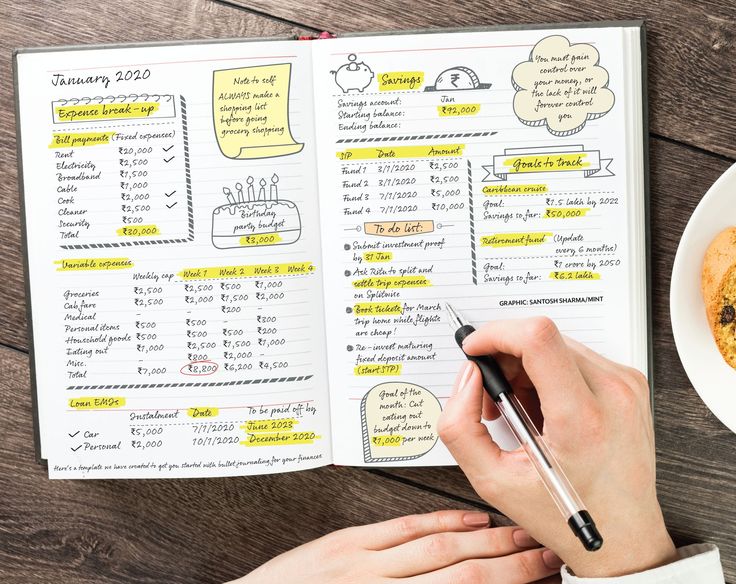 January 2020
Expense break-up
Bill payments (Fixed expenses)
Rent ₹20,000
Electricity ₹2,500
Broadband ₹1,500
Cable ₹1,000
Cook ₹2,000
Cleaner ₹2,500
Security ₹500
Total ₹30,000
Note to self
ALWAYS make a
shopping list
before going
grocery shopping
Birthday
party budget
₹3,000
Variable expenses
Weekly cap Week 1 Week 2 Week 3 Week 4
Groceries ₹2,500 ₹2,500 ₹500 ₹1,000
Cab fare ₹2,500 ₹2,000 ₹1,500 ₹2,000
Medical - - ₹200 -
Personal items ₹500 ₹500 - ₹500
Household goods ₹500 ₹500 ₹500 ₹200
Eating out ₹1,000 ₹2,500 ₹1,500 ₹1,000
Misc. - ₹800 ₹2,000 -
Total ₹7,000 ₹8,800 ₹6,200 ₹4,500
Loan EMIs
Instalment Date To be paid off by
Car ₹5,000 7/1/2020 June 2023
Personal ₹2,000 10/1/2020 December 2020
Here's a template we have created to get you started with bullet journaling for your finances
Savings
₹
Savings account: Jan
Starting balance: ₹92,000
Ending balance:
You must gain
control over
your money, or
the lack of it will
forever control
you
SIP Date Amount
Fund 1 3/1/2020 ₹2,500
Fund 2 3/1/2020 ₹2,500
Fund 3 7/1/2020 ₹5,000
Fund 4 7/1/2020 ₹10,000
Goals to track
Caribbean cruise
Goal: ₹1.5 lakh by 2022
Savings so far: ₹50,000
Retirement fund (Update
every 6 months)
Goal: ₹1 crore by 2050
Savings so far: ₹6.2 lakh
GRAPHIC: SANTOSH SHARMA/MINT
To do list:
Submit investment proof
by 31 Jan
Ask Ritu to split and
settle trip expenses
on Splitwise
Book tickets for March
trip home while flights
are cheap!
Re-invest maturing
fixed deposit amount
(start STP)
Goal of the
month: Cut
eating out
budget down to
₹1,000 per week